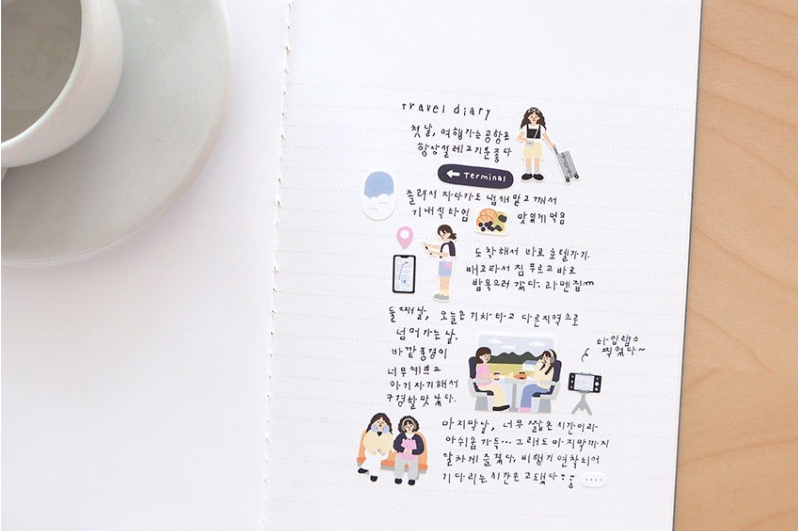 travel diary
첫날, 여행가는 공항은
항상 설레고 기분좋다
← Terminal
졸려서 자다가도 냄새 맡고 깨서
기내식 타임 맛있게 먹음
도착해서 바로 호텔가기.
배고파서 짐 푸르고 바로
밥 먹으러 갔다. 라멘집m
둘째날, 오늘은 기차 타고 다른지역으로
넘어가는 날.
바깥 풍경이
너무 예쁘고
아기자기해서
구경할 맛 났다.
타임랩스
찍었다~
마지막날, 너무 짧은 시간이라
아쉬움 가득... 그래도 마지막까지
알차게 즐겼다. 비행기 연착되어
기다리는 시간은 고됐다 ;;
....